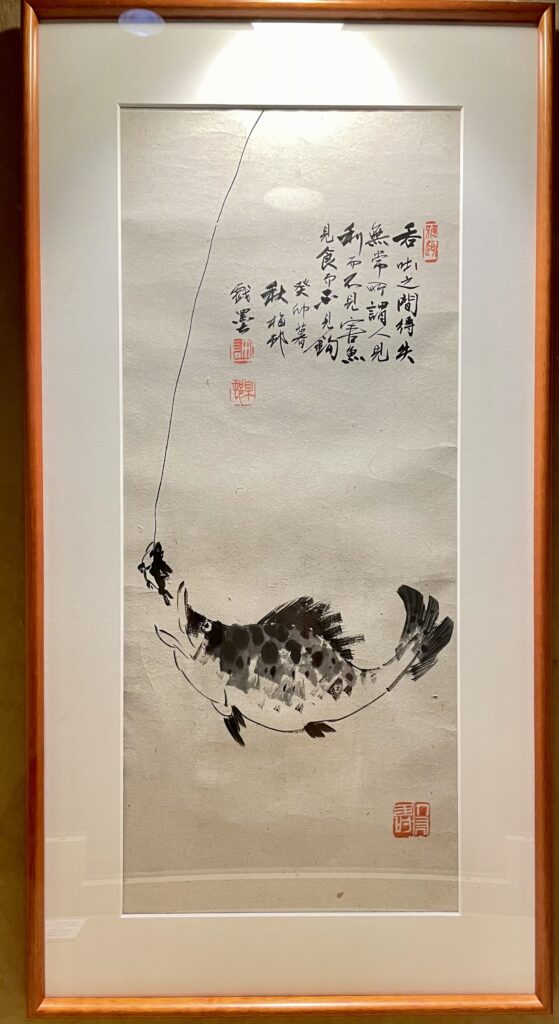 雅趣
吞吐之間得失
無常所謂人見
利而不見害魚
見食而不見鉤
癸卯暮
秋梅邨
戲墨